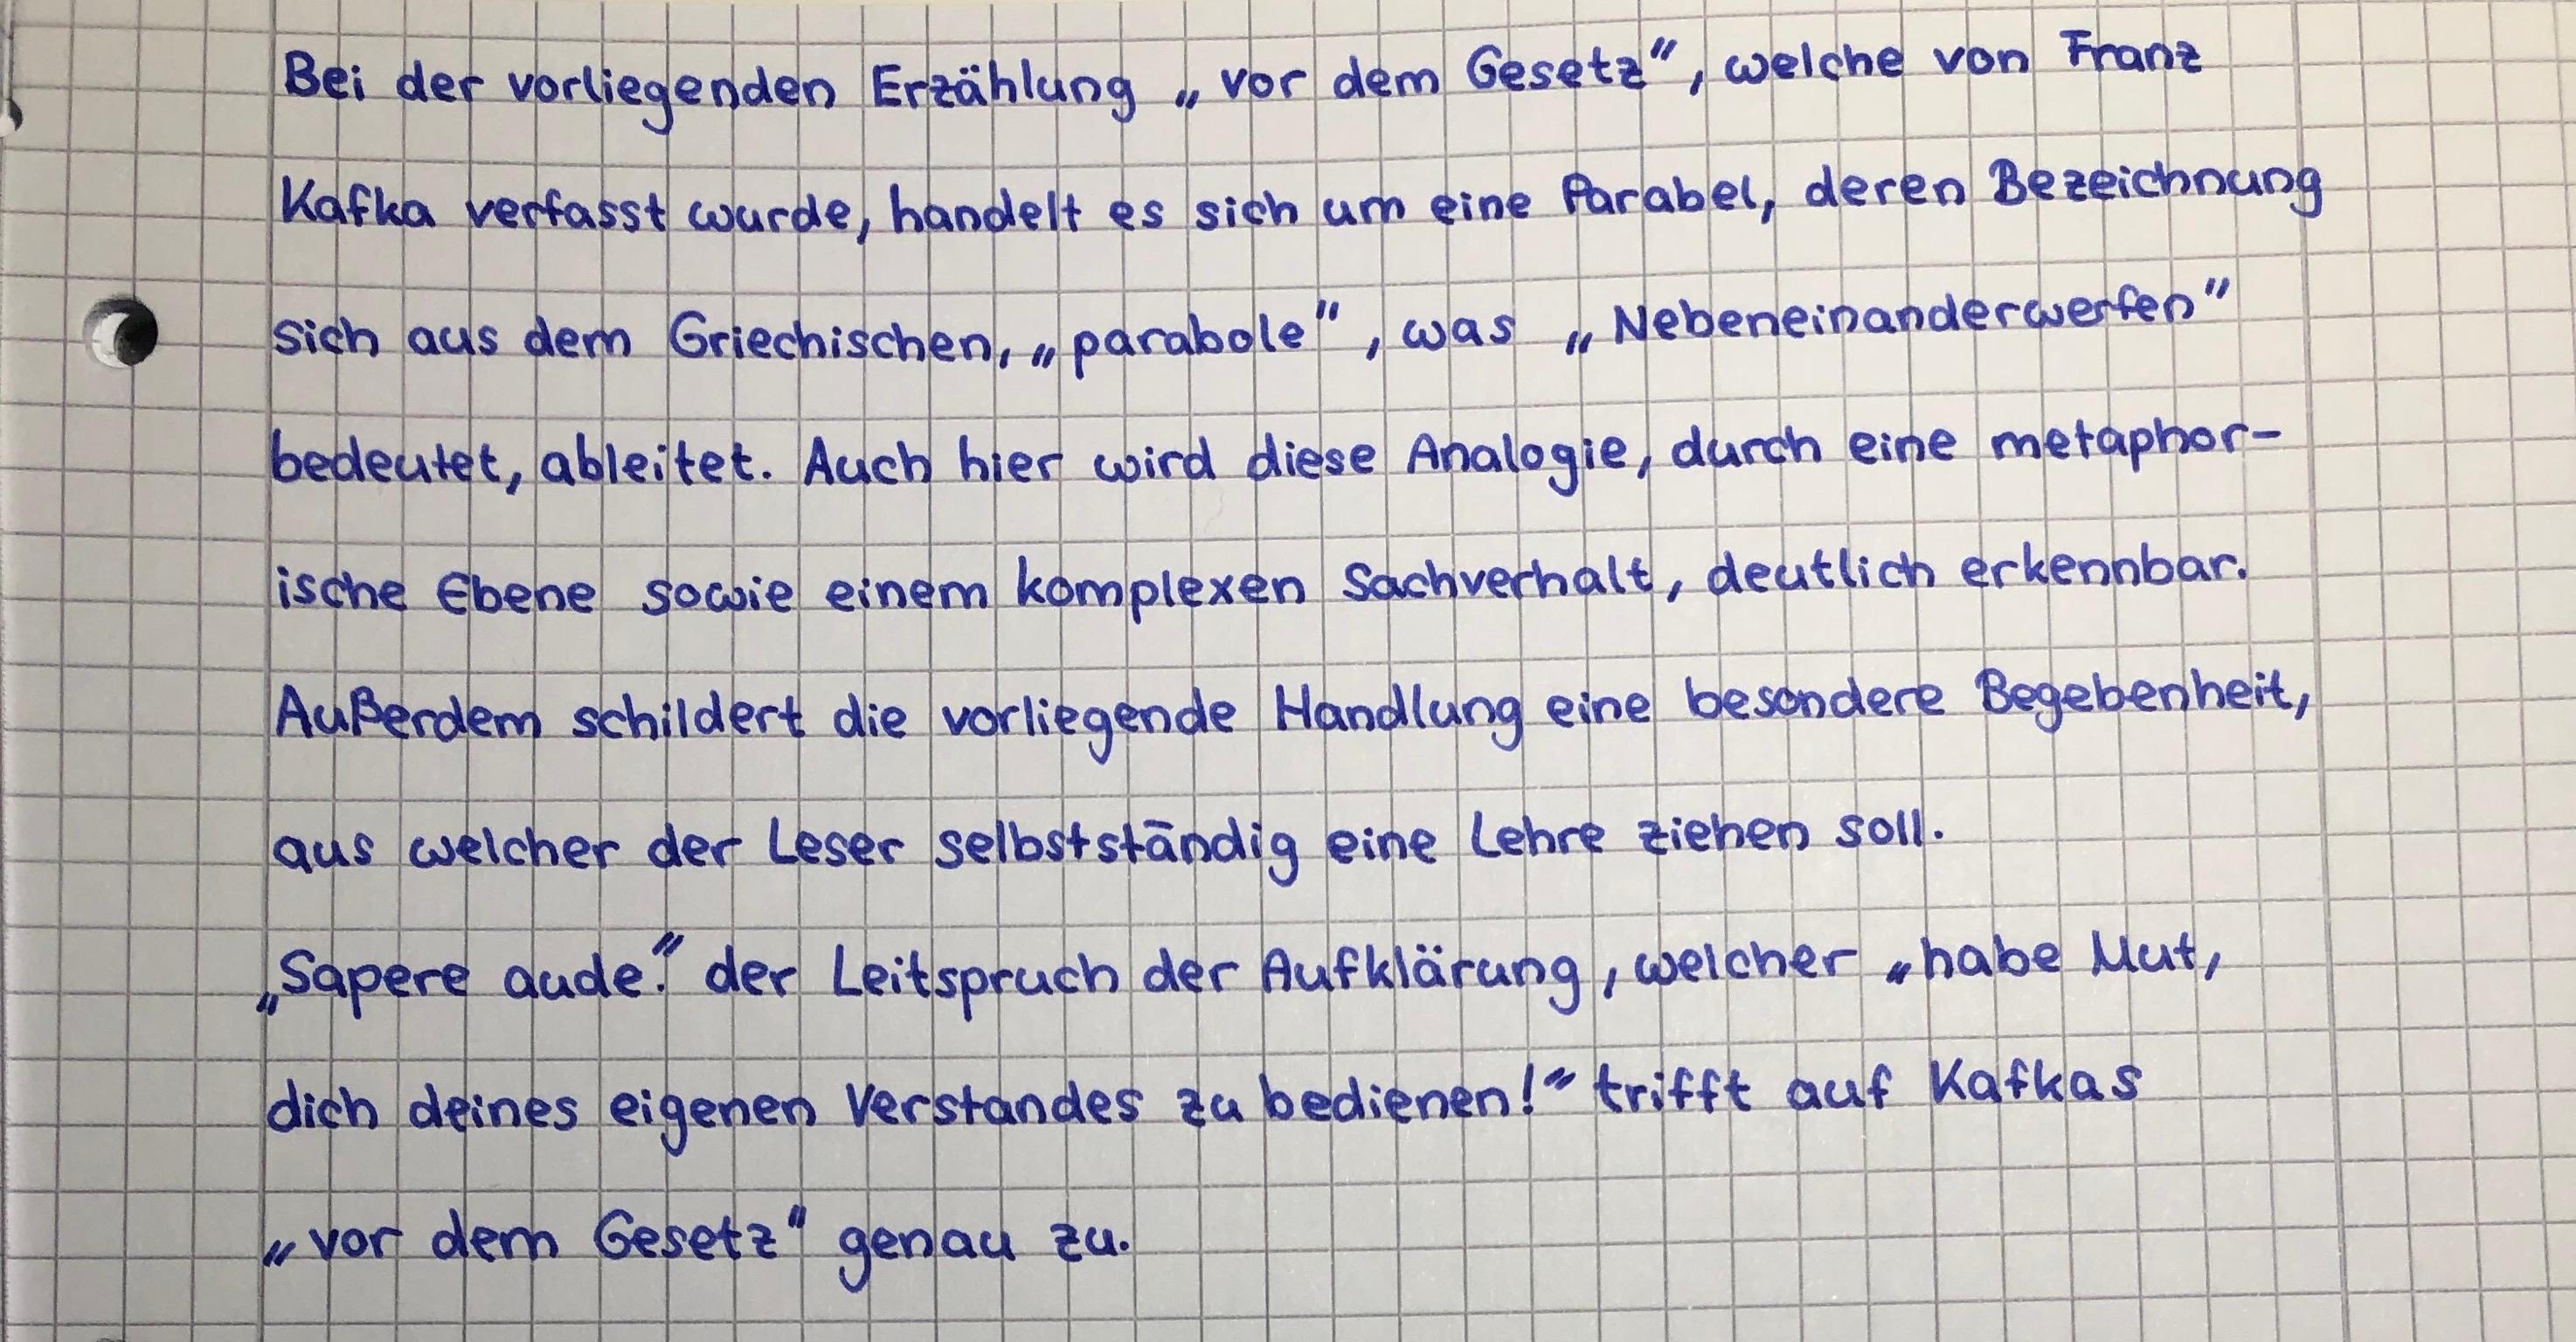 Bei der vorliegenden Erzählung „vor dem Gesetz", welche von Franz
Kafka verfasst wurde, handelt es sich um eine Parabel, deren Bezeichnung
sich aus dem Griechischen, „parabole", was „Nebeneinanderwerfen"
bedeutet, ableitet. Auch hier wird diese Analogie, durch eine metaphor-
ische Ebene sowie einem komplexen Sachverhalt, deutlich erkennbar.
Außerdem schildert die vorliegende Handlung eine besondere Begebenheit,
aus welcher der Leser selbstständig eine Lehre ziehen soll.
„Sapere aude." der Leitspruch der Aufklärung, welcher „habe Mut,
dich deines eigenen Verstandes zu bedienen!" trifft auf Kafkas
„vor dem Gesetz" genau zu.